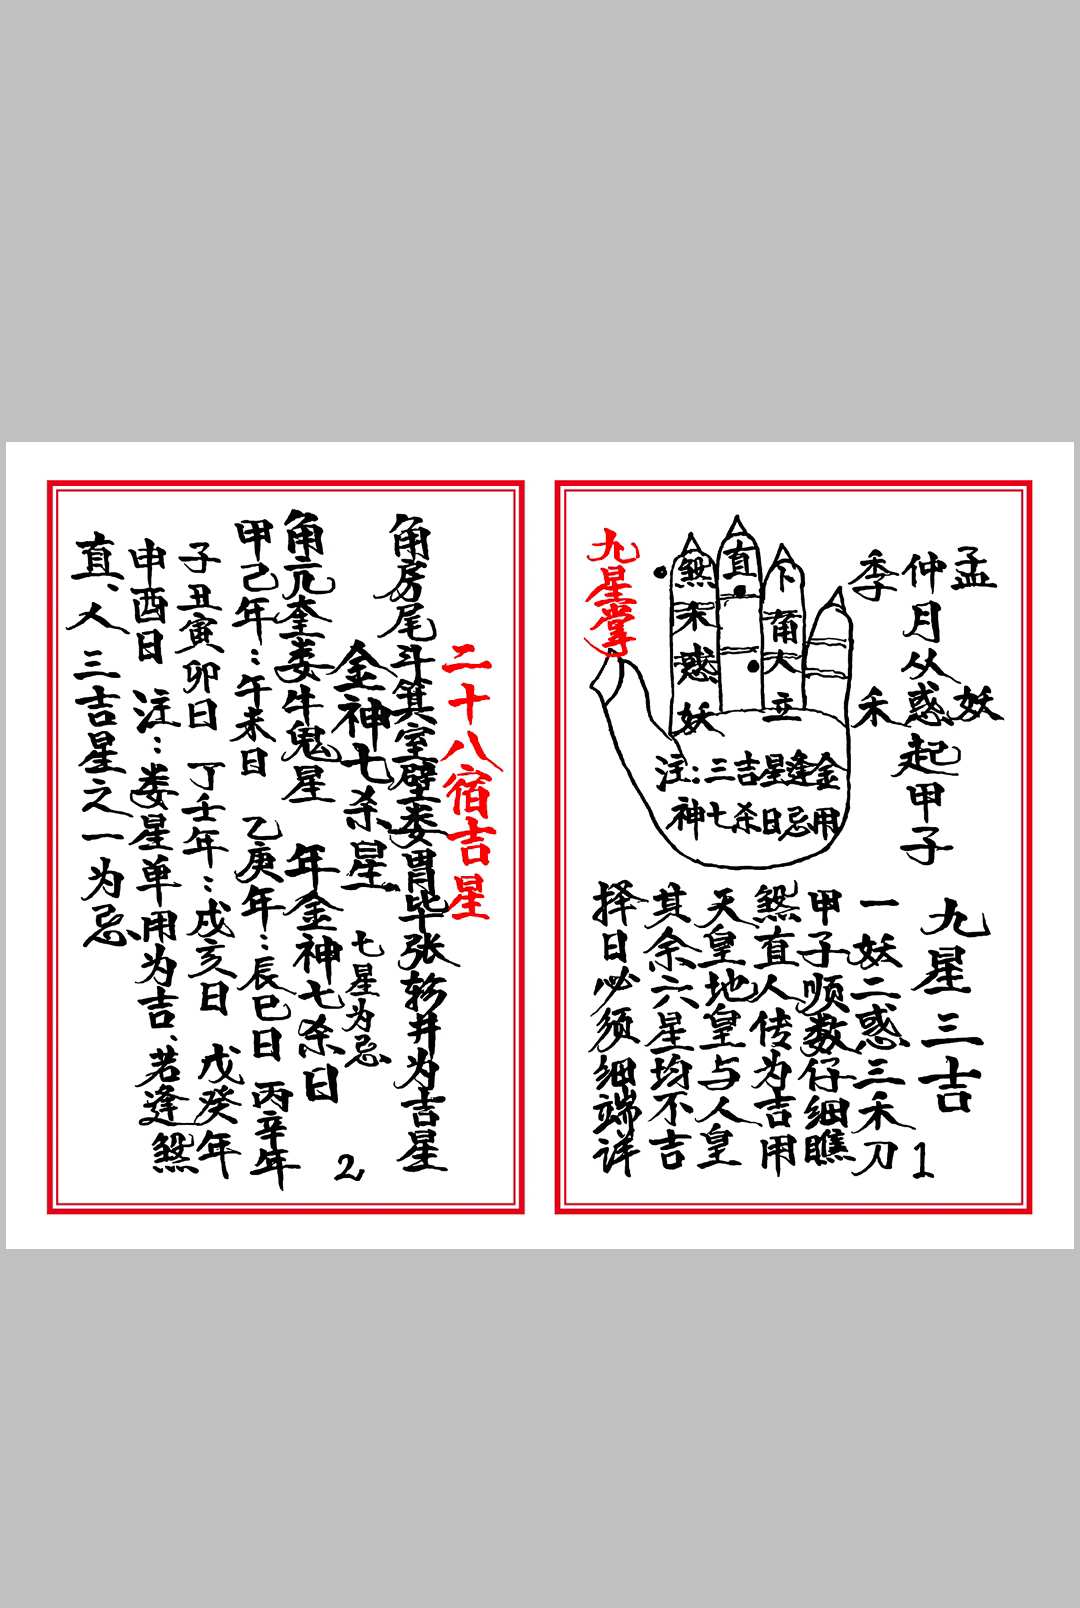 孟 妖
仲月从惑起甲子
季 禾
九星掌
煞
禾
惑
妖
直
卜
莆
大
立
注:三吉星逢金
神七杀日忌用
九星三吉
一妖二惑三禾刀
甲子顺数仔细瞧
煞直人传为吉用
天皇地皇与人皇
其余六星均不吉
择日必须细端详
1
二十八宿吉星
角房尾斗箕室壁娄胃毕张轸井为吉星
金神七杀星 七星为忌
角亢奎娄牛鬼星 年金神七杀日
甲己年:午未日 乙庚年:辰巳日 丙辛年
子丑寅卯日 丁壬年:戌亥日 戊癸年
申酉日 注:娄星单用为吉、若逢煞
直、人三吉星之一为忌
2